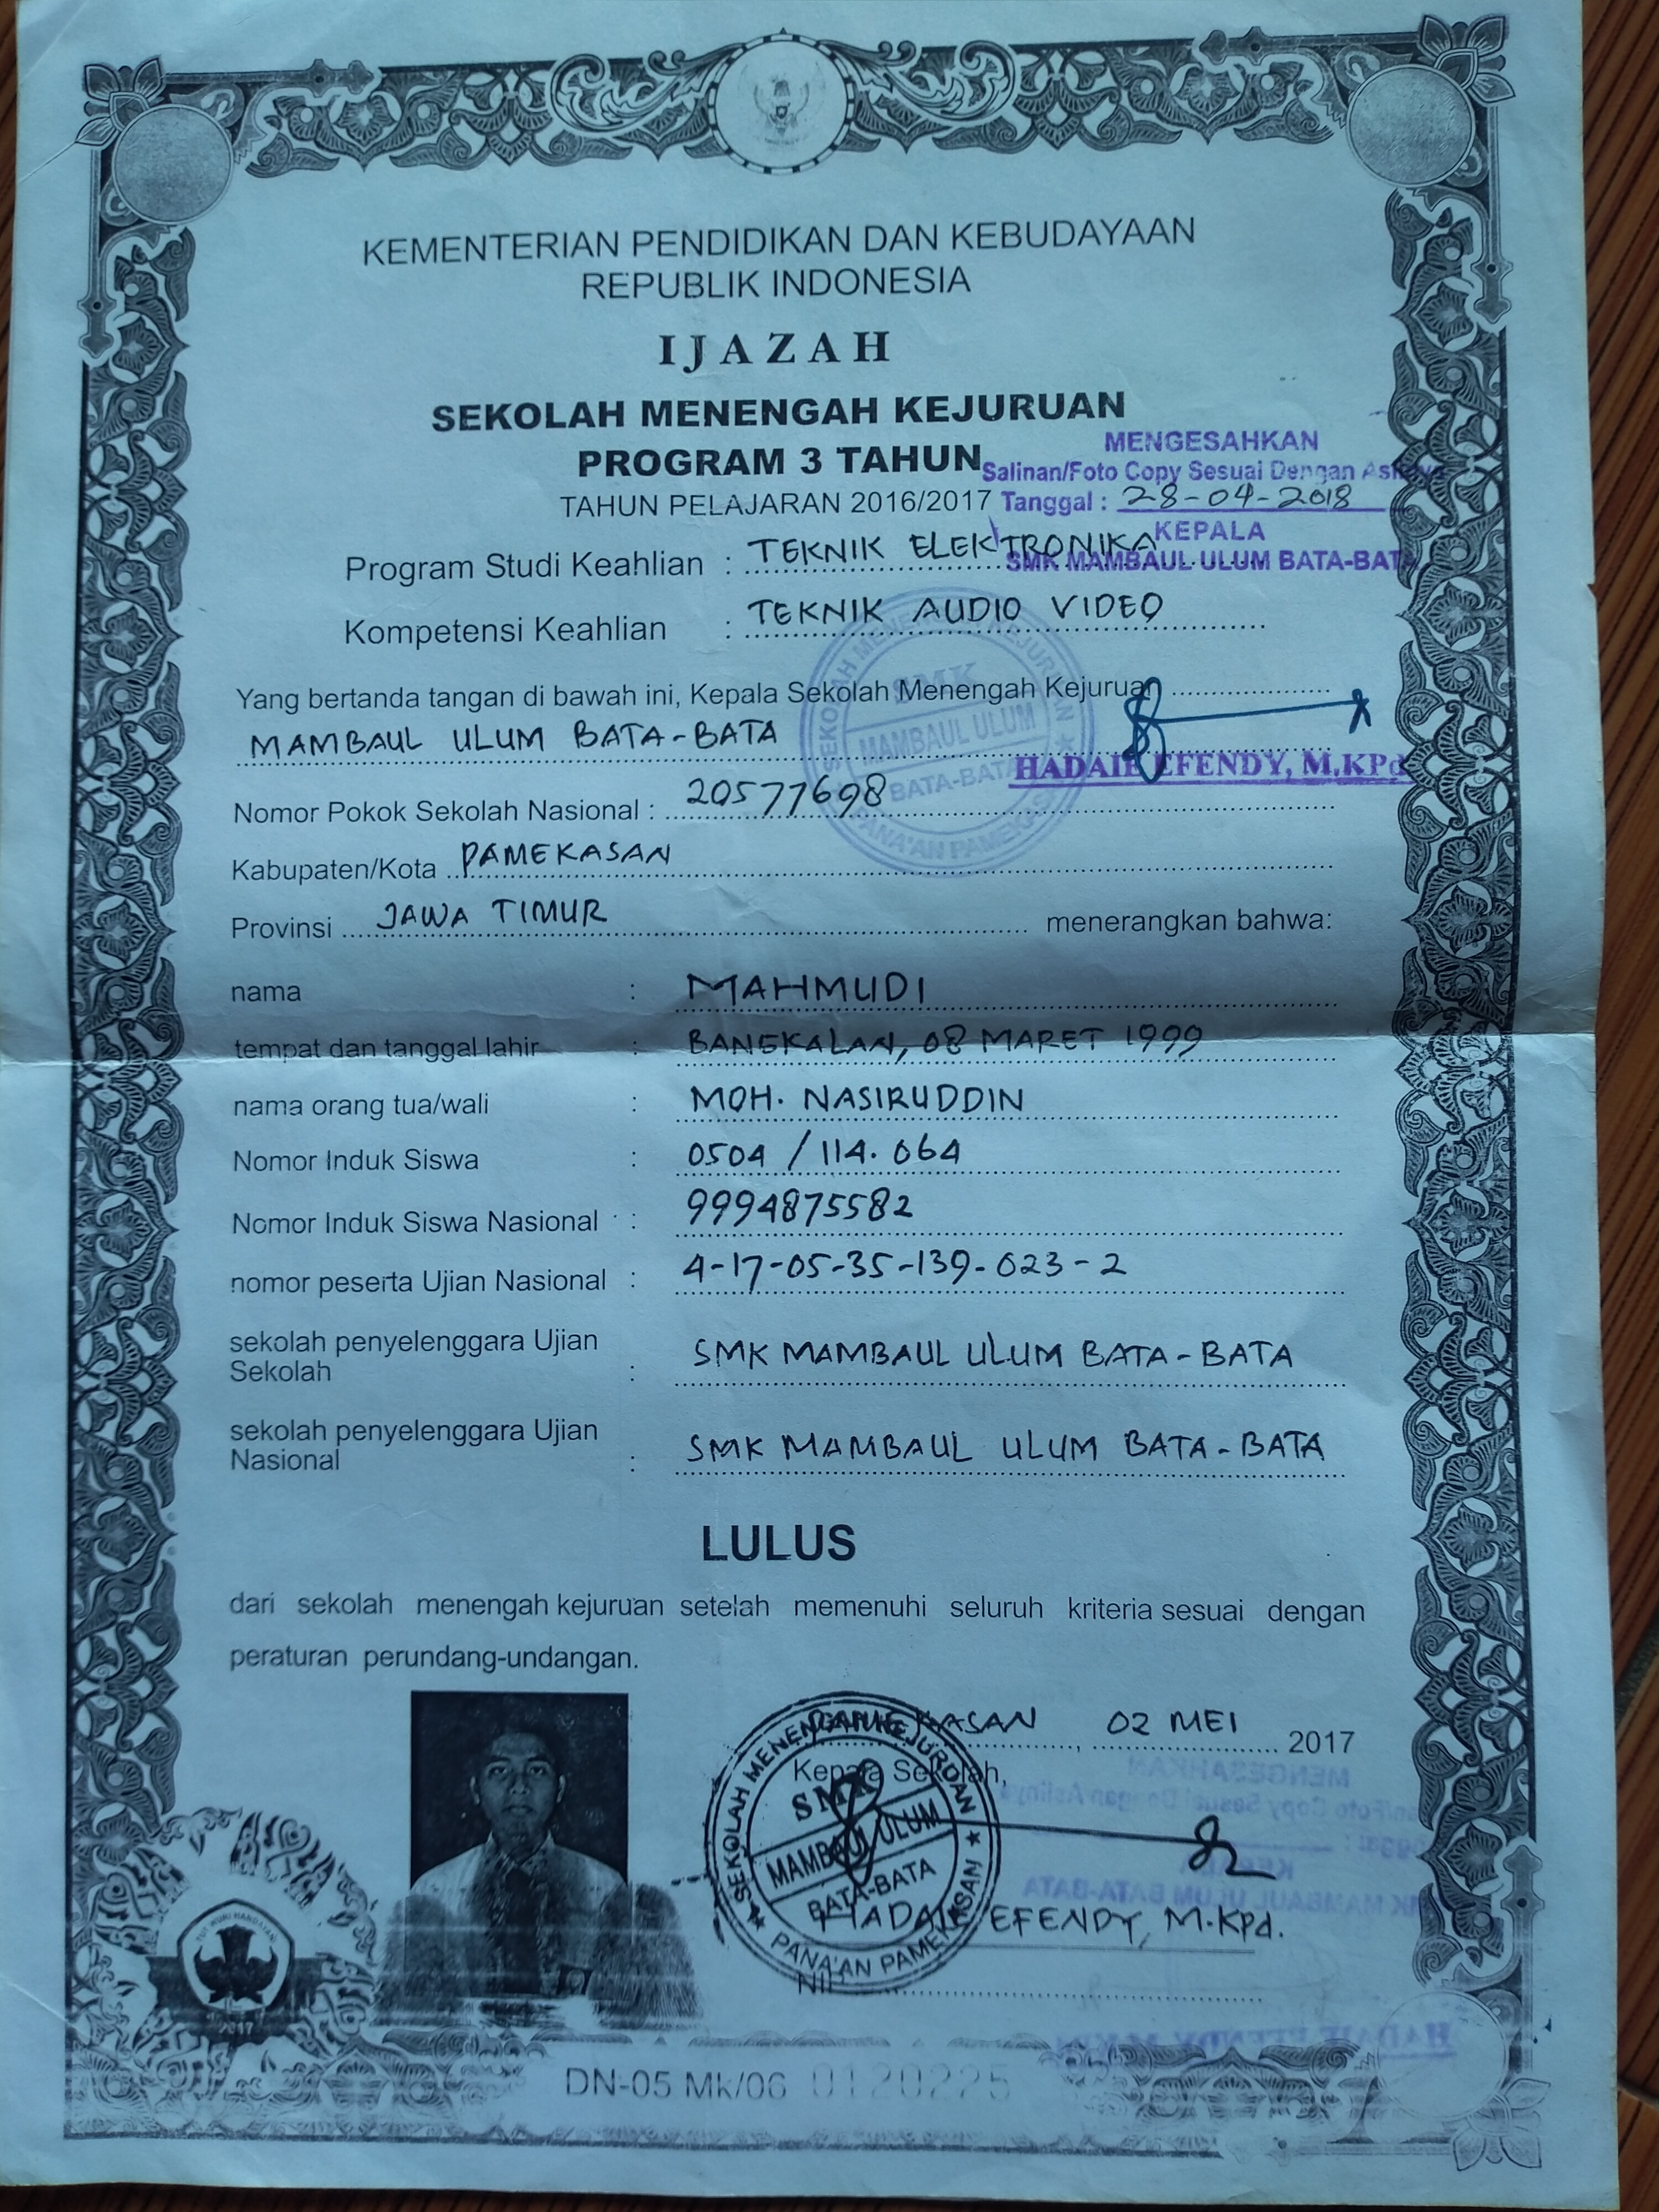 KEMENTERIAN PENDIDIKAN DAN KEBUDAYAAN
REPUBLIK INDONESIA
IJAZAH
SEKOLAH MENENGAH KEJURUAN
PROGRAM 3 TAHUN
TAHUN PELAJARAN 2016/2017
MENGESAHKAN
Salinan/Foto Copy Sesuai Dengan
Tanggal : 28-04-2018
KEPALA
SMK MAMBAUL ULUM BATA-BATA
Program Studi Keahlian : TEKNIK ELEKTRONIKA
Kompetensi Keahlian : TEKNIK AUDIO VIDEO
Yang bertanda tangan di bawah ini, Kepala Sekolah Menengah Kejuruan
MAMBAUL ULUM BATA-BATA
SEKOLAH MENENGAH KEJURUAN
SMK
MAMBAUL ULUM
BATA-BATA
PANA'AN PAMEKASAN
HADAIE EFENDY, M.KPd
Nomor Pokok Sekolah Nasional : 20577698
Kabupaten/Kota PAMEKASAN
Provinsi JAWA TIMUR menerangkan bahwa:
nama : MAHMUDI
tempat dan tanggal lahir : BANGKALAN, 08 MARET 1999
nama orang tua/wali : MOH. NASIRUDDIN
Nomor Induk Siswa : 0504 / 114. 064
Nomor Induk Siswa Nasional : 9994875582
nomor peserta Ujian Nasional : 4-17-05-35-139-023-2
sekolah penyelenggara Ujian
Sekolah : SMK MAMBAUL ULUM BATA-BATA
sekolah penyelenggara Ujian
Nasional : SMK MAMBAUL ULUM BATA-BATA
LULUS
dari sekolah menengah kejuruan setelah memenuhi seluruh kriteria sesuai dengan
peraturan perundang-undangan.
PAMEKASAN, 02 MEI 2017
Kepala Sekolah,
SEKOLAH MENENGAH KEJURUAN
SMK
MAMBAUL ULUM
BATA-BATA
PANA'AN PAMEKASAN
HADAIE EFENDY, M.KPd.
NIP
TUT WURI HANDAYANI
2017
DN-05 Mk/06 0120225